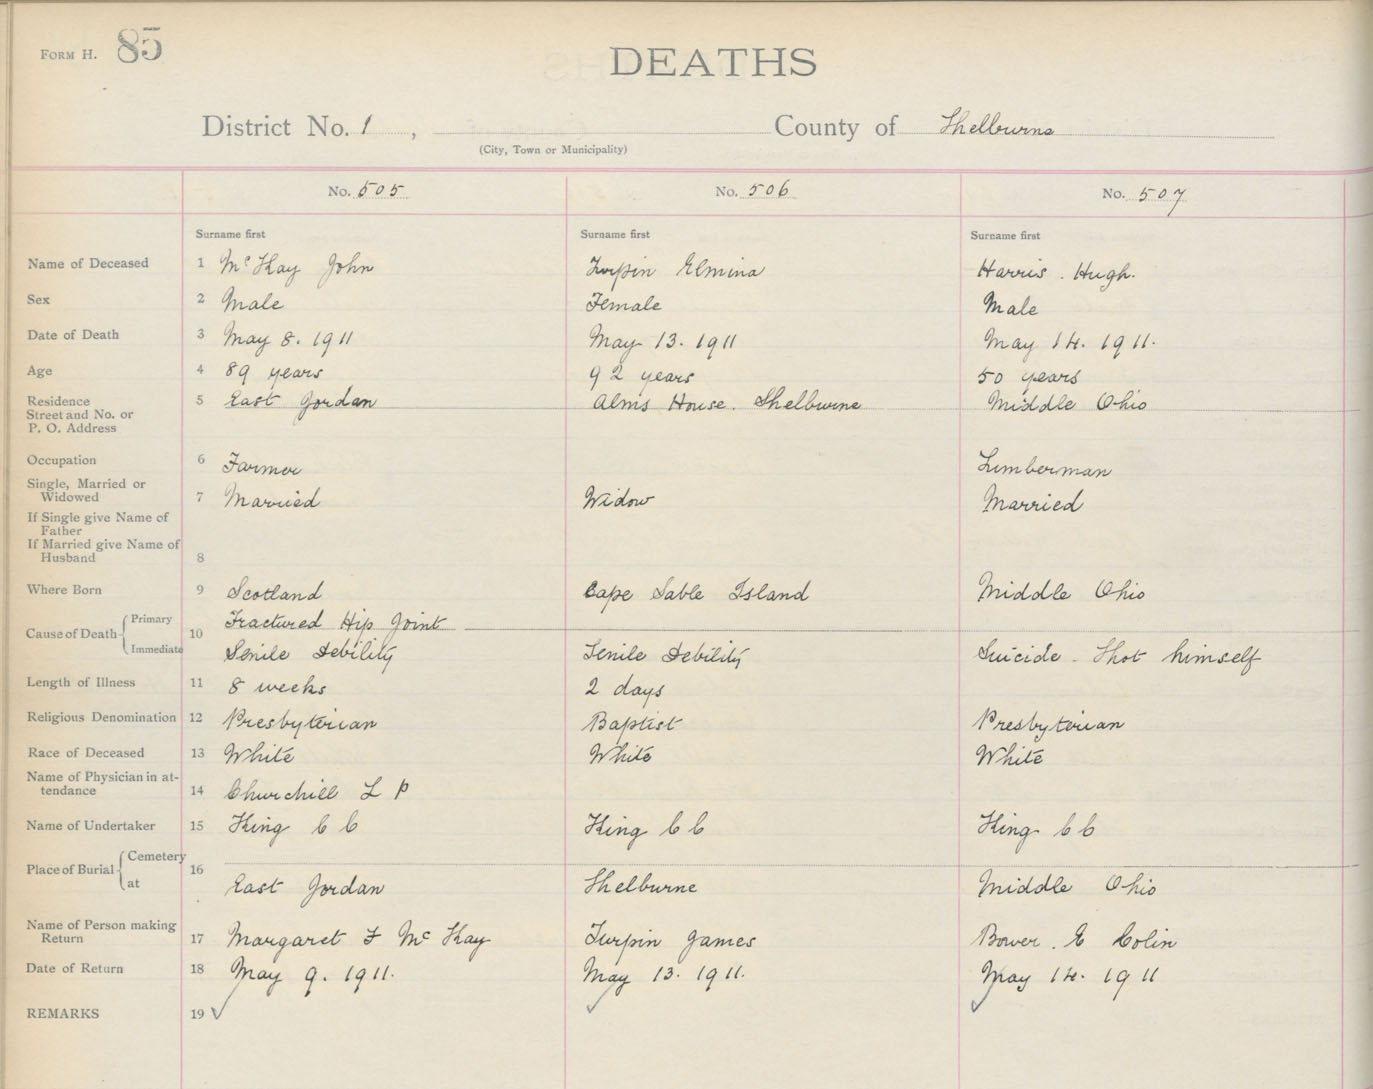 FORM H. 85
DEATHS
District No. 1 , County of Shelburne
(City, Town or Municipality)
No. 505 No. 506 No. 507
Surname first Surname first Surname first
Name of Deceased 1 McKay John Turpin Elmina Harris. Hugh.
Sex 2 Male Female Male
Date of Death 3 May 8. 1911 May 13. 1911 May 14. 1911.
Age 4 89 years 92 years 50 years
Residence 5 East Jordan Alms House. Shelburne Middle Ohio
Street and No. or
P. O. Address
Occupation 6 Farmer Lumberman
Single, Married or
Widowed 7 Married Widow Married
If Single give Name of
Father
If Married give Name of
Husband 8
Where Born 9 Scotland Cape Sable Island Middle Ohio
Cause of Death 10
Primary Fractured Hip Joint
Immediate Senile Debility Senile Debility Suicide - Shot himself
Length of Illness 11 8 weeks 2 days
Religious Denomination 12 Presbyterian Baptist Presbyterian
Race of Deceased 13 White White White
Name of Physician in at-
tendance 14 Churchill L P
Name of Undertaker 15 King C C King C C King C C
Place of Burial 16
Cemetery
at East Jordan Shelburne Middle Ohio
Name of Person making
Return 17 Margaret F McKay Turpin James Bower. E Colin
Date of Return 18 May 9. 1911. May 13. 1911. May 14. 1911
REMARKS 19